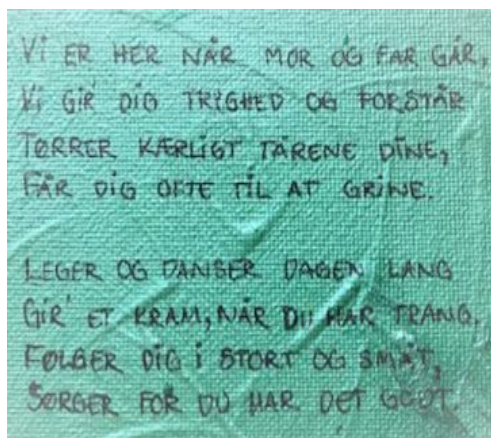 Vi ER HER NÅR MOR OG FAR GÅR,
Vi GiR' DiG TRYGHED OG FORSTÅR
TØRRER KÆRLiGT TÅRENE DiNE,
FÅR DiG OFTE TiL AT GRiNE.
LEGER OG DANSER DAGEN LANG
GiR' ET KRAM, NÅR DU HAR TRANG,
FØLGER DiG i STORT OG SMÅT,
SØRGER FOR DU HAR DET GODT.